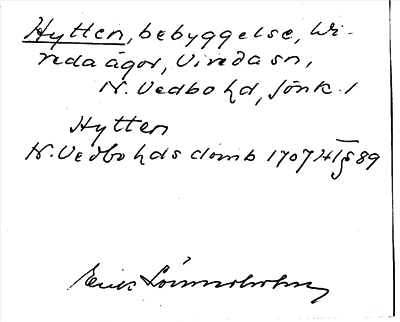 Hytten, bebyggelse, Vi-
reda ägor, Vireda sn,
N. Vedbo hd, Jönk. l
Hytten
N. Vedbo hds domb 1707 § 89
Erik